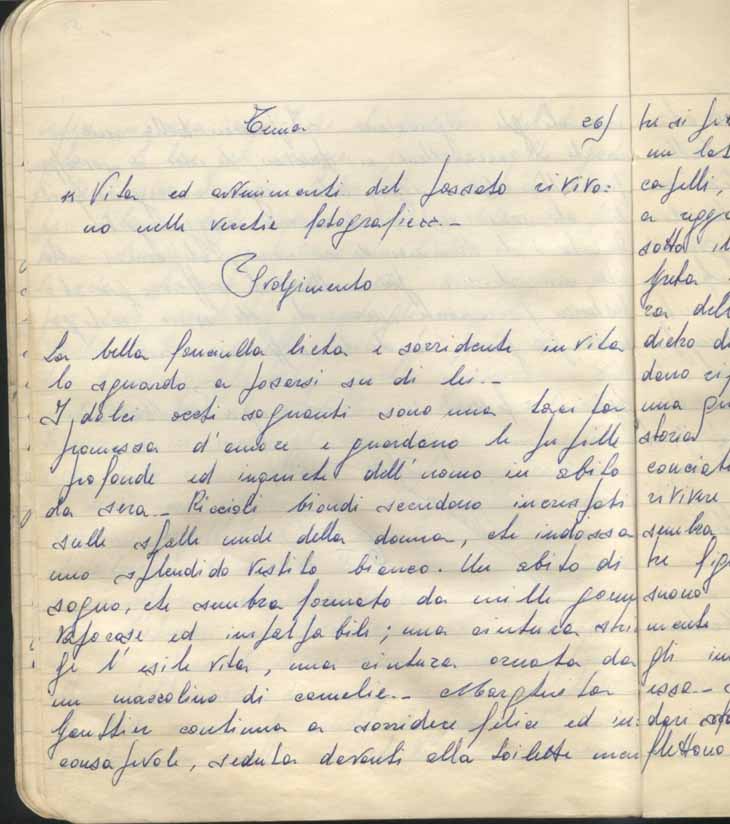 Tema 26)
« Vita ed avvenimenti del passato rivivo=
no nelle vecchie fotografie».-
Svolgimento
La bella fanciulla lieta e sorridente invita
lo sguardo a posarsi su di lei.-
I dolci occhi sognanti sono una tacita
promessa d'amore e guardano le pupille
profonde ed inquiete dell'uomo in abito
da sera. Riccioli biondi scendono increspati
sulle spalle nude della donna, che indossa
uno splendido vestito bianco. Un abito di
sogno, che sembra formato da mille
vaporose ed impalpabili; una cintura strin
ge l'esile vita, una cintura ornata da
un mazzolino di camelie.- Margherita
Gauthier continua a sorridere felice ed in=
consapevole, seduta davanti alla toilette
tre si
un
capelli,
a
sotto il
ra
dietro
dano
una
storia
rivivere
sembra
tre
suono
mente
gli
essa.-
flettono